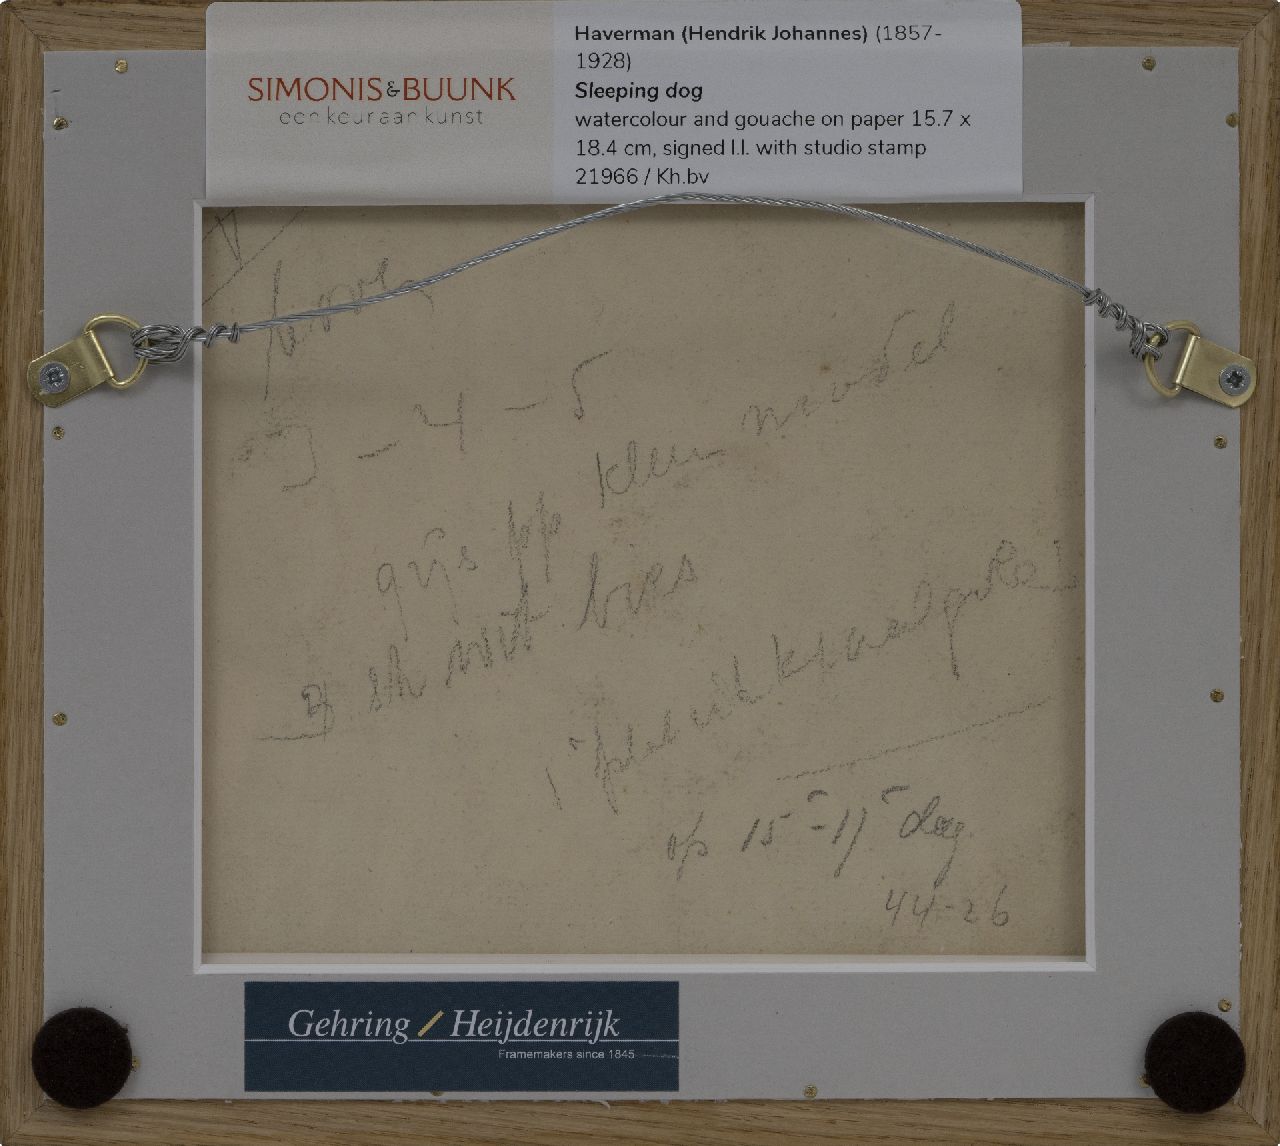 Haverman (Hendrik Johannes) (1857-
1928)
Sleeping dog
watercolour and gouache on paper 15.7 x
18.4 cm, signed l.l. with studio stamp
21966 / Kh.bv
SIMONIS&BUUNK
een keur aan kunst
- 4 - 5
klein model
grijs pp
met bies
op 15 - 17 dag
44-26
Gehring / Heijdenrijk
Framemakers since 1845